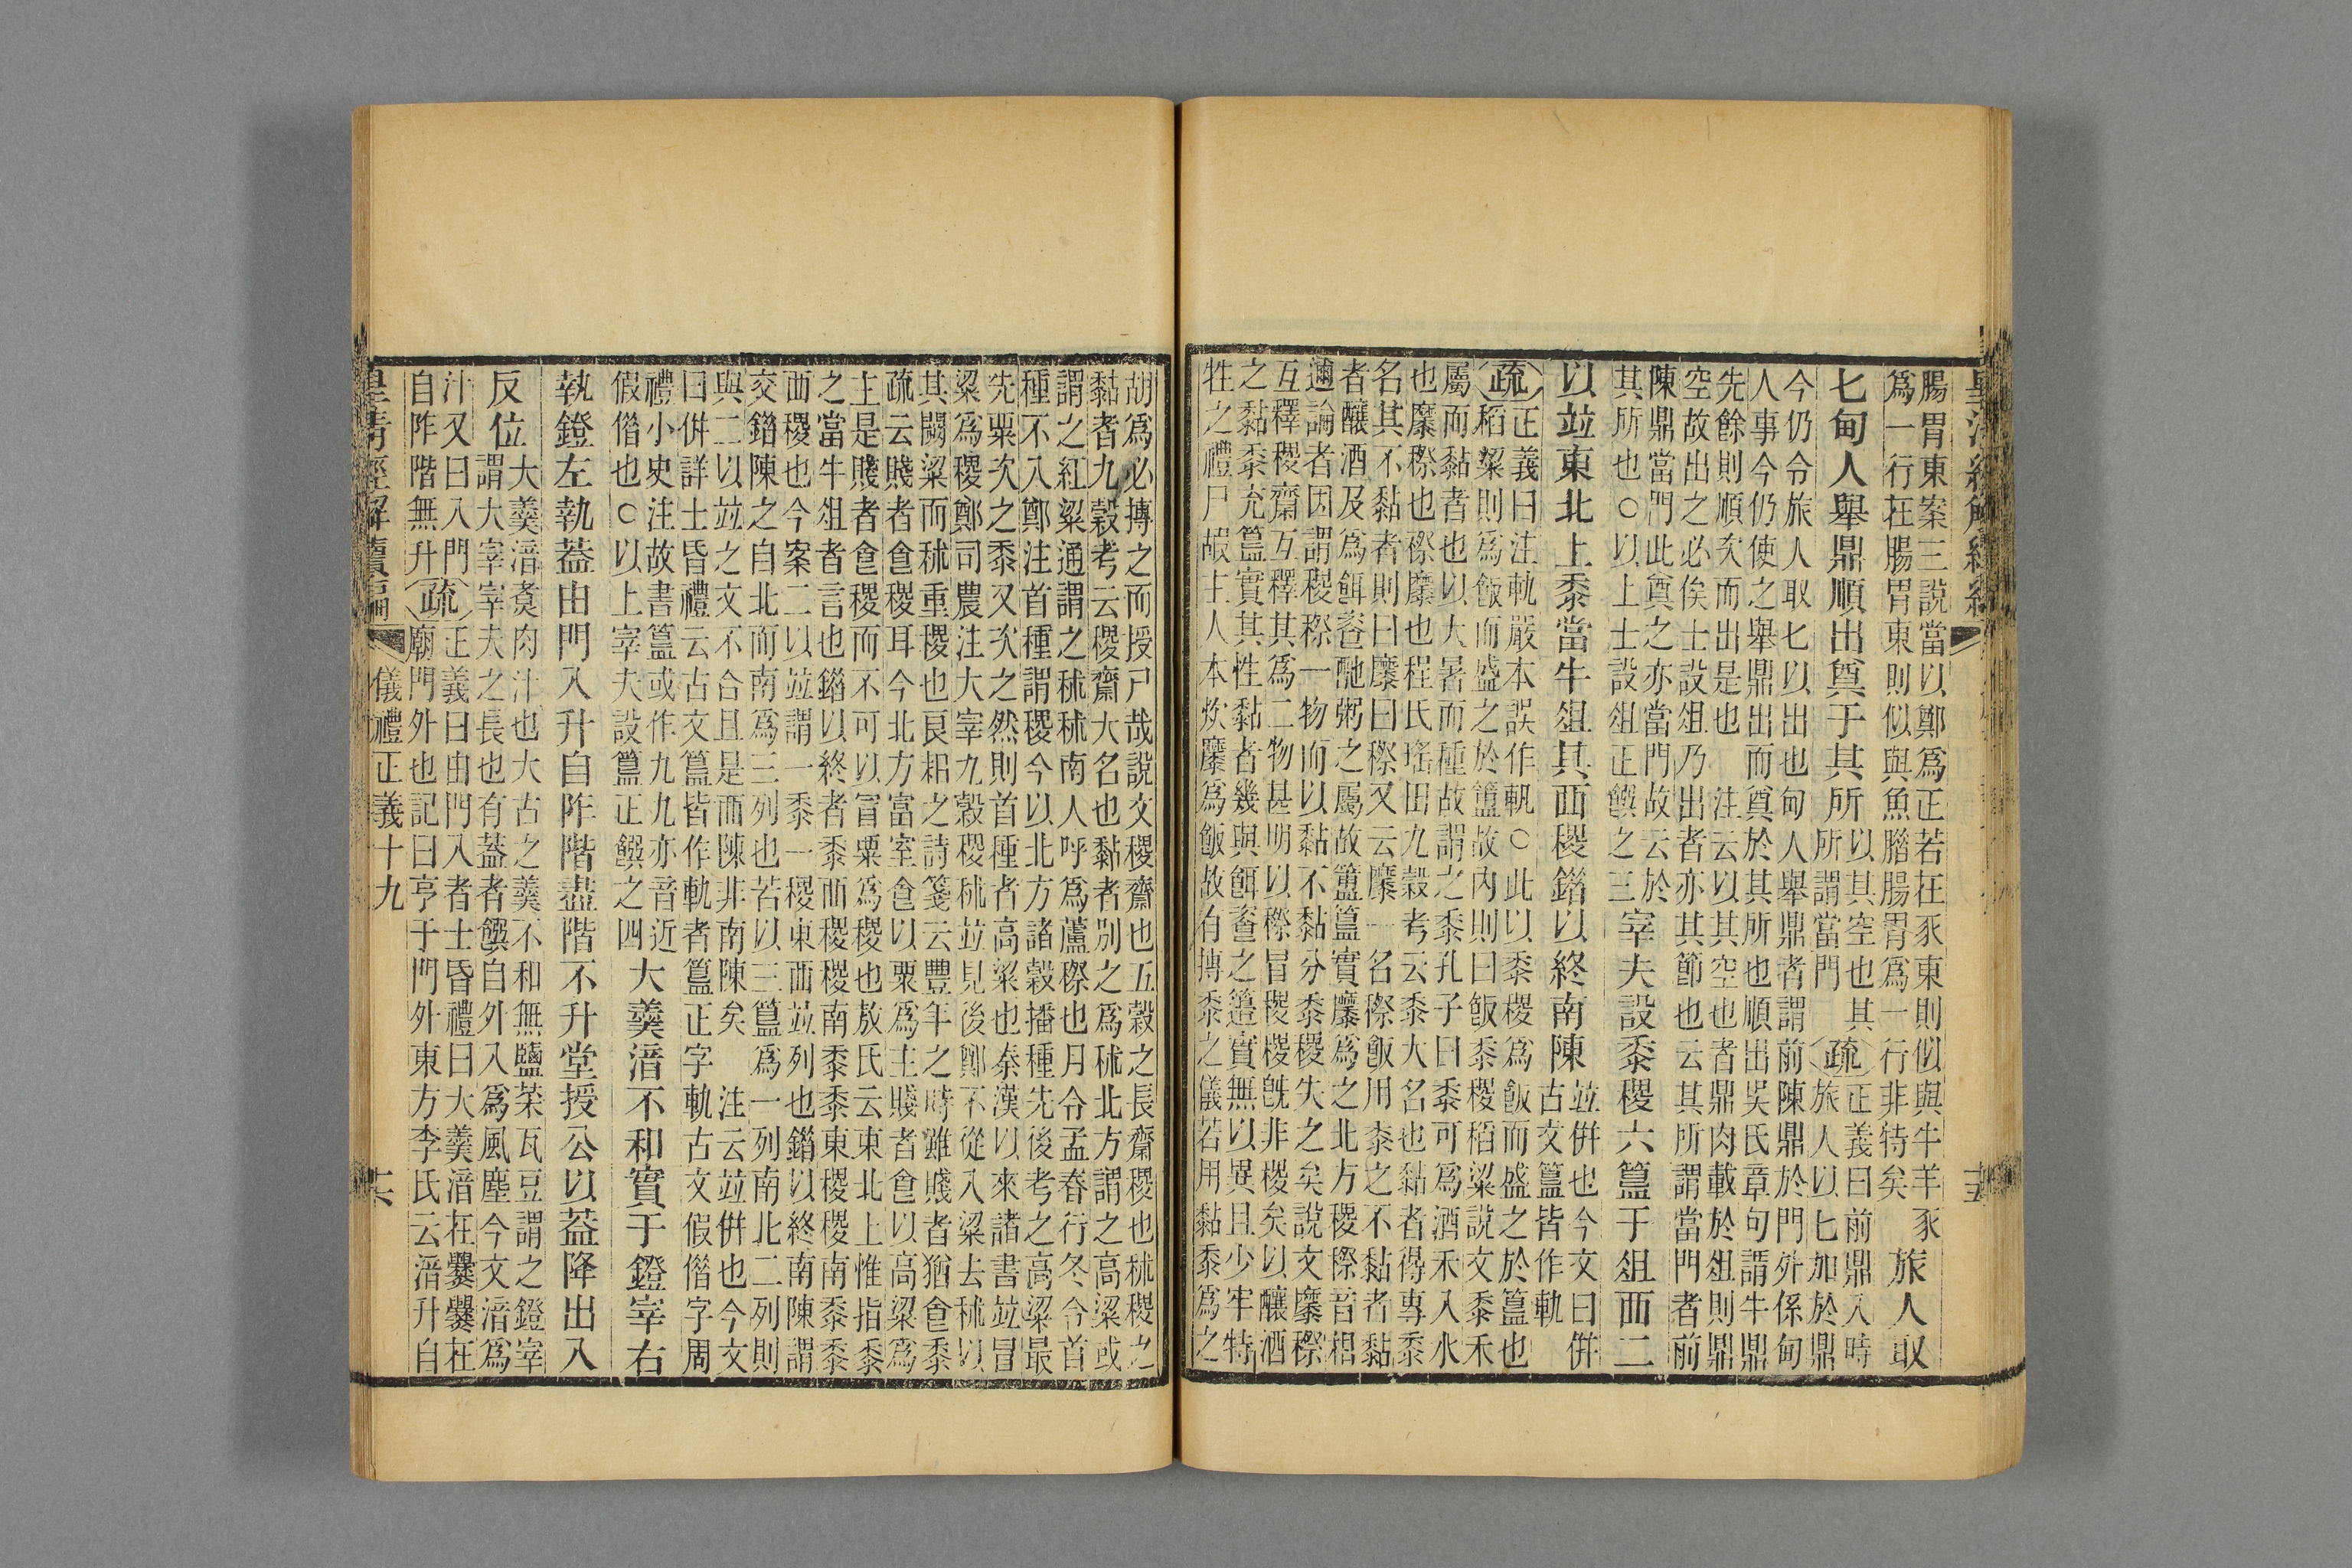 腸胃東案三說當以鄭爲正若在豕東則似與牛羊豕
爲一行在腸胃東則似與魚腊腸胃爲一行非特矣
旅人取
匕甸人舉鼎順出奠于其所
以其空也其
所謂當門
疏
正義曰前鼎入時
旅人以匕加於鼎
今仍令旅人取匕以出也甸人舉鼎者謂前陳鼎於門外係甸
人事今仍使之舉鼎出而奠於其所也順出吳氏章句謂牛鼎
先餘則順次而出是也　注云以其空也者鼎肉載於俎則鼎
空故出之必俟士設俎乃出者亦其節也云其所謂當門者前
陳鼎當門此奠之亦當門故云於
其所也○以上士設俎正饌之三
宰夫設黍稷六簋于俎西二
以並東北上黍當牛俎其西稷錯以終南陳
並併也今文曰併
古文簋皆作軌
疏
正義曰注軌嚴本誤作軓○此以黍稷爲飯而盛之於簋也
稻粱則爲飯而盛之於簠故內則曰飯黍稷稻粱說文黍禾
屬而黏者也以大暑而種故謂之黍孔子曰黍可爲酒禾入水
也穈穄也穄穈也程氏瑤田九穀考云黍大名也黏者得專黍
名其不黏者則曰穈曰穄又云穈一名穄飯用黍之不黏者黏
者釀酒及爲餌餈酏粥之屬故簠簋實穈爲之北方稷穄音相
邇論者因謂稷穄一物而以黏不黏分黍稷失之矣說文穈穄
互釋稷齋互釋其爲二物甚明以穄冒稷稷旣非稷矣以釀酒
之黏黍充簋實其性黏者幾與餌餈之籩實無以異且少牢特
牲之禮尸嘏主人本炊穈爲飯故有摶黍之儀若用黏黍爲之
胡爲必摶之而授尸哉說文稷齋也五穀之長齋稷也秫稷之
黏者九穀考云稷齋大名也黏者別之爲秫北方謂之高粱或
謂之紅粱通謂之秫秫南人呼爲蘆穄也月令孟春行冬令首
種不入鄭注首種謂稷今以北方諸穀播種先後考之高粱最
先粟次之黍又次之然則首種者高粱也秦漢以來諸書並冒
粱爲稷鄭司農注大宰九穀稷秫並見後鄭不從入粱去秫以
其闕粱而秫重稷也良耜之詩箋云豐年之時雖賤者猶食黍
疏云賤者食稷耳今北方富室食以粟爲主賤者食以高粱爲
主是賤者食稷而不可以冒粟爲稷也敖氏云東北上惟指黍
之當牛俎者言也錯以終者黍西稷稷南黍黍東稷稷南黍黍
西稷也今案二以並謂一黍一稷東西並列也錯以終南陳謂
交錯陳之自北而南爲三列也若以三簋爲一列南北二列則
與二以並之文不合且是西陳非南陳矣　注云並併也今文
曰併詳士昏禮云古文簋皆作軌者簋正字軌古文假借字周
禮小史注故書簋或作九九亦音近
假借也○以上宰夫設簋正饌之四
大羹湆不和實于鐙宰右
執鐙左執蓋由門入升自阼階盡階不升堂授公以蓋降出入
反位
大羹湆煑肉汁也大古之羹不和無鹽菜瓦豆謂之鐙宰
謂大宰宰夫之長也有蓋者饌自外入爲風塵今文湆爲
汁又曰入門
自阼階無升
疏
正義曰由門入者士昏禮曰大羹湆在爨爨在
廟門外也記曰亨于門外東方李氏云湆升自
皇清經解續編　儀禮正義十九　十六